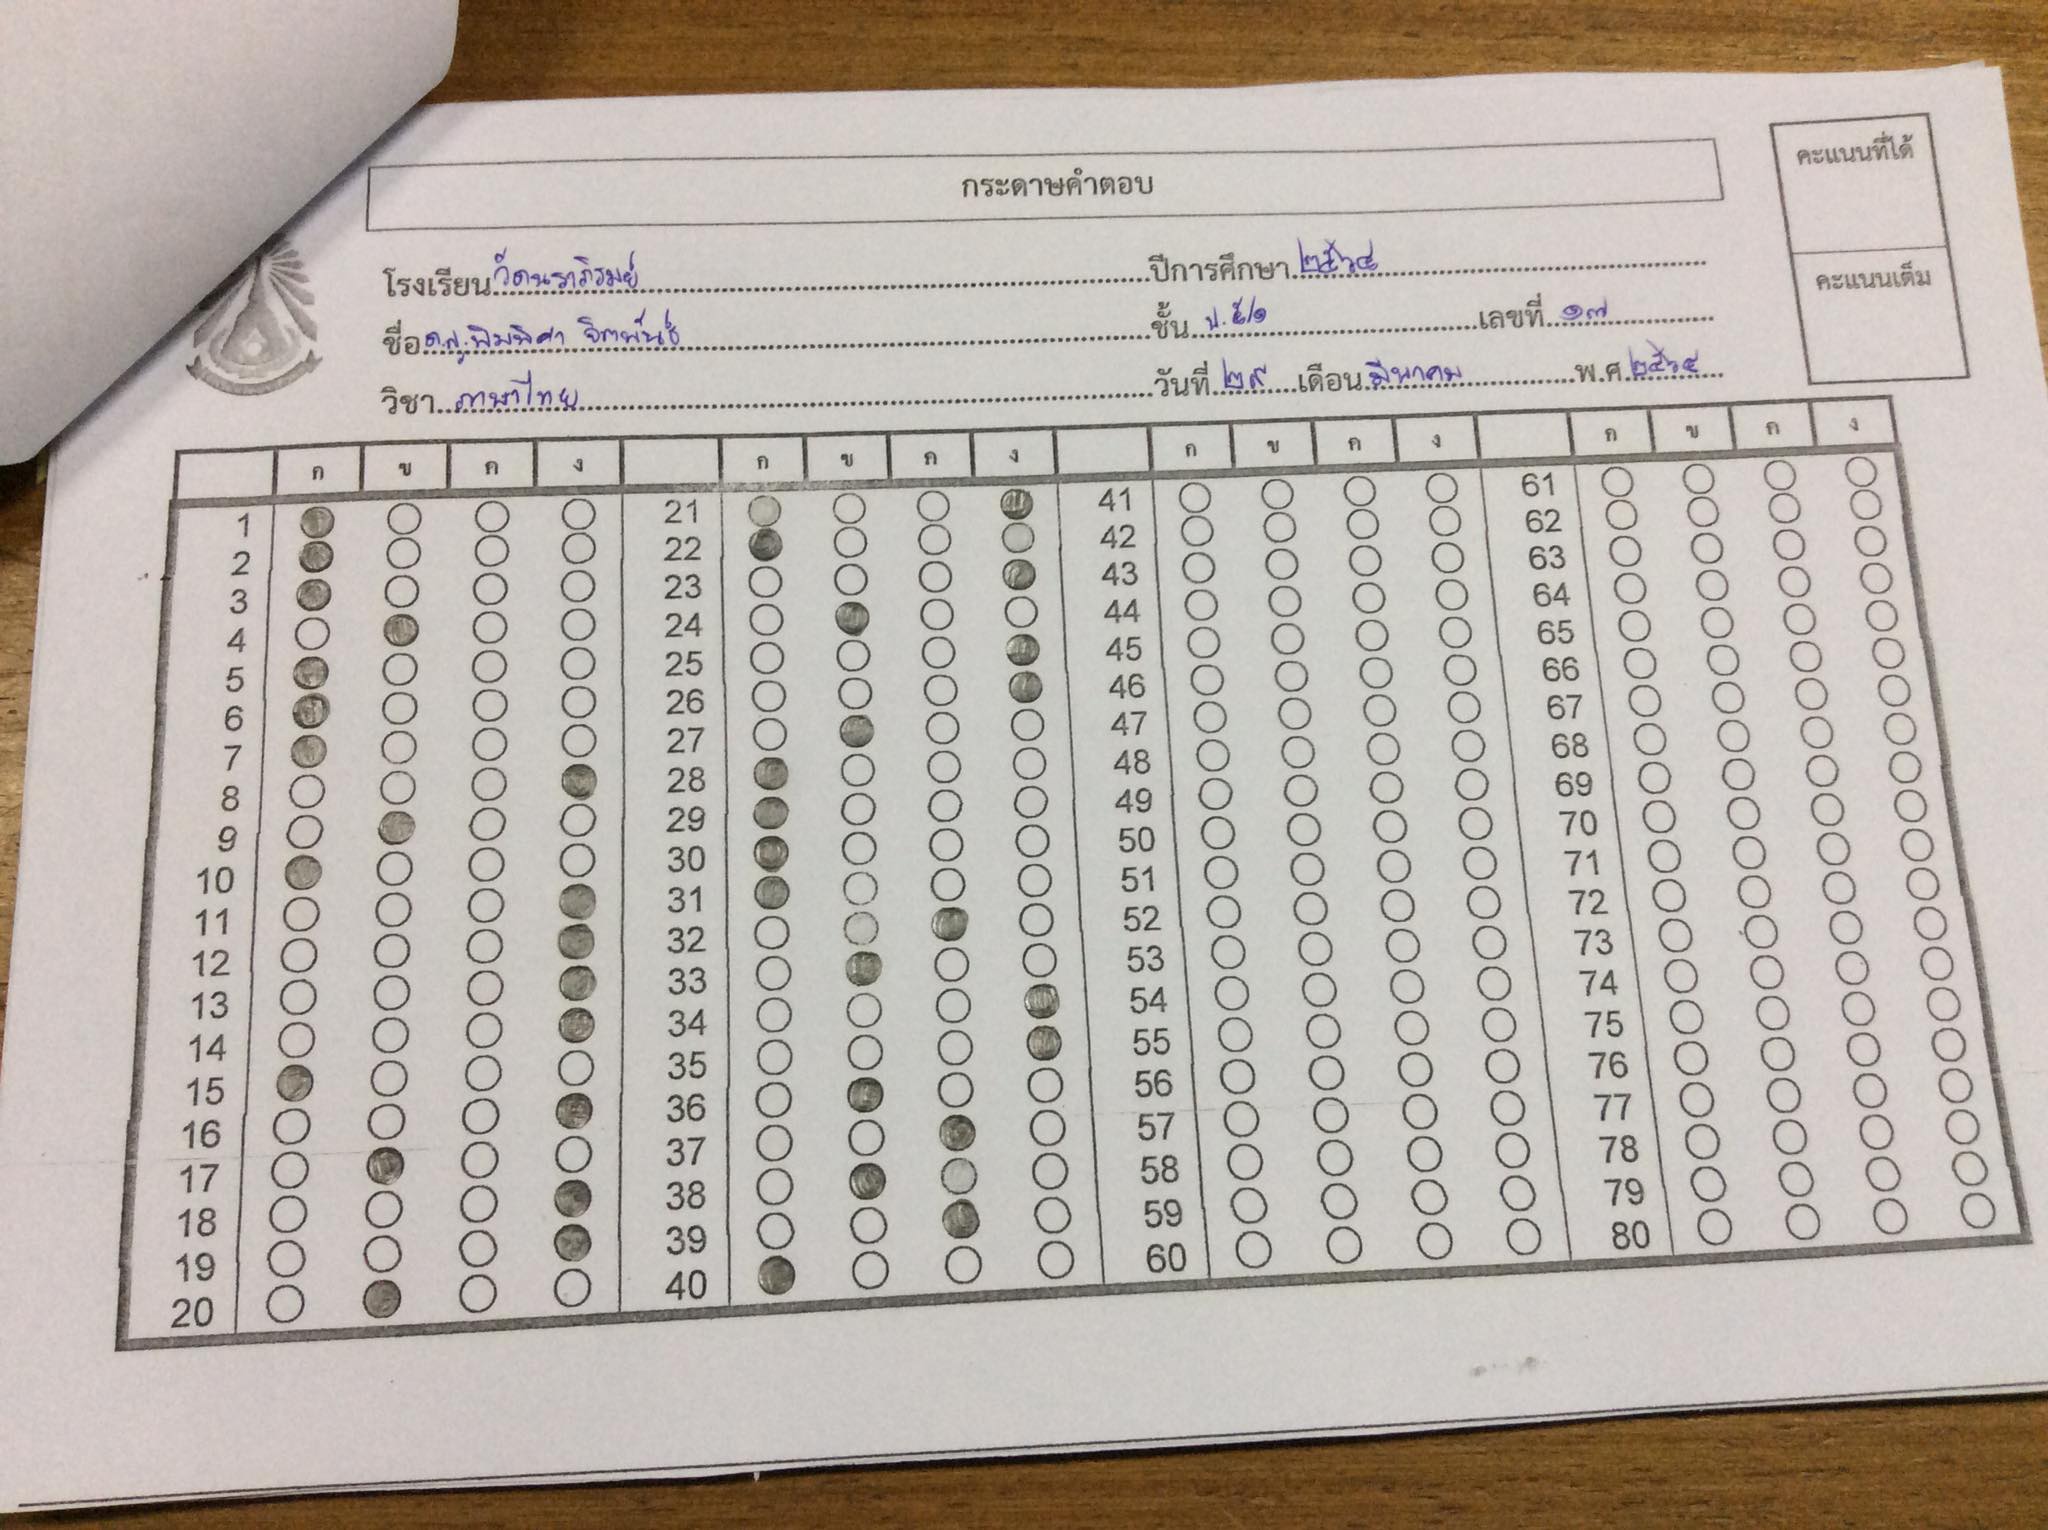 กระดาษคำตอบ
คะแนนที่ได้
คะแนนเต็ม
โรงเรียน วัดนราภิรมย์ ปีการศึกษา ๒๕๖๔
ชื่อ ด.ญ.พิมพิศา จิตพันธ์ ชั้น ป.๕/๑ เลขที่ ๑๗
วิชา ภาษาไทย วันที่ ๒๙ เดือน มีนาคม พ.ศ. ๒๕๖๕
ก ข ค ง ก ข ค ง ก ข ค ง ก ข ค ง
1 21 41 61
2 22 42 62
3 23 43 63
4 24 44 64
5 25 45 65
6 26 46 66
7 27 47 67
8 28 48 68
9 29 49 69
10 30 50 70
11 31 51 71
12 32 52 72
13 33 53 73
14 34 54 74
15 35 55 75
16 36 56 76
17 37 57 77
18 38 58 78
19 39 59 79
20 40 60 80